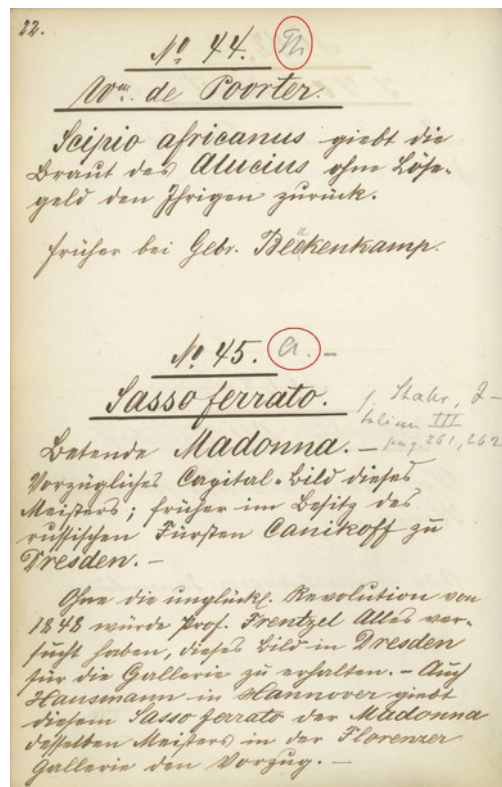 22.
No 44. Th
Wm. de Poorter.
Scipio africanus giebt die
Braut des Alucius ohne Löse-
geld den Ihrigen zurück.
früher bei Gebr. Beckenkamp.
No 45. a. –
Sasso ferrato.
f. Stahr, I-
talien III
pag. 261, 262
Betende Madonna. –
Vorzügliches Capital-Bild dieses
Meisters; früher im Besitz des
russischen Fürsten Canikoff zu
Dresden. –
Ohne die unglückl. Revolution von
1848 würde Prof. Frentzel Alles ver-
sucht haben, dieses Bild in Dresden
für die Gallerie zu erhalten. – Auch
Hausmann in Hannover giebt
diesem Sasso ferrato der Madonna
desselben Meisters in der Florenzer
Gallerie den Vorzug. –